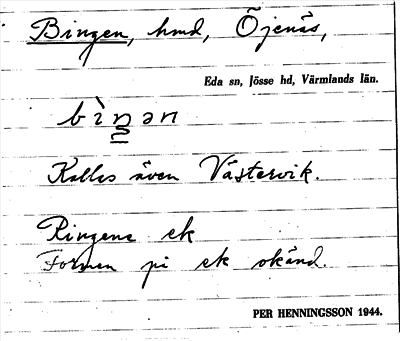 Bingen, hmd, Öjenäs,
Eda sn, Jösse hd, Värmlands län.
bìŋən
Kallas även Västervik.
Ringens ek
Formen på ek okänd.
PER HENNINGSSON 1944.